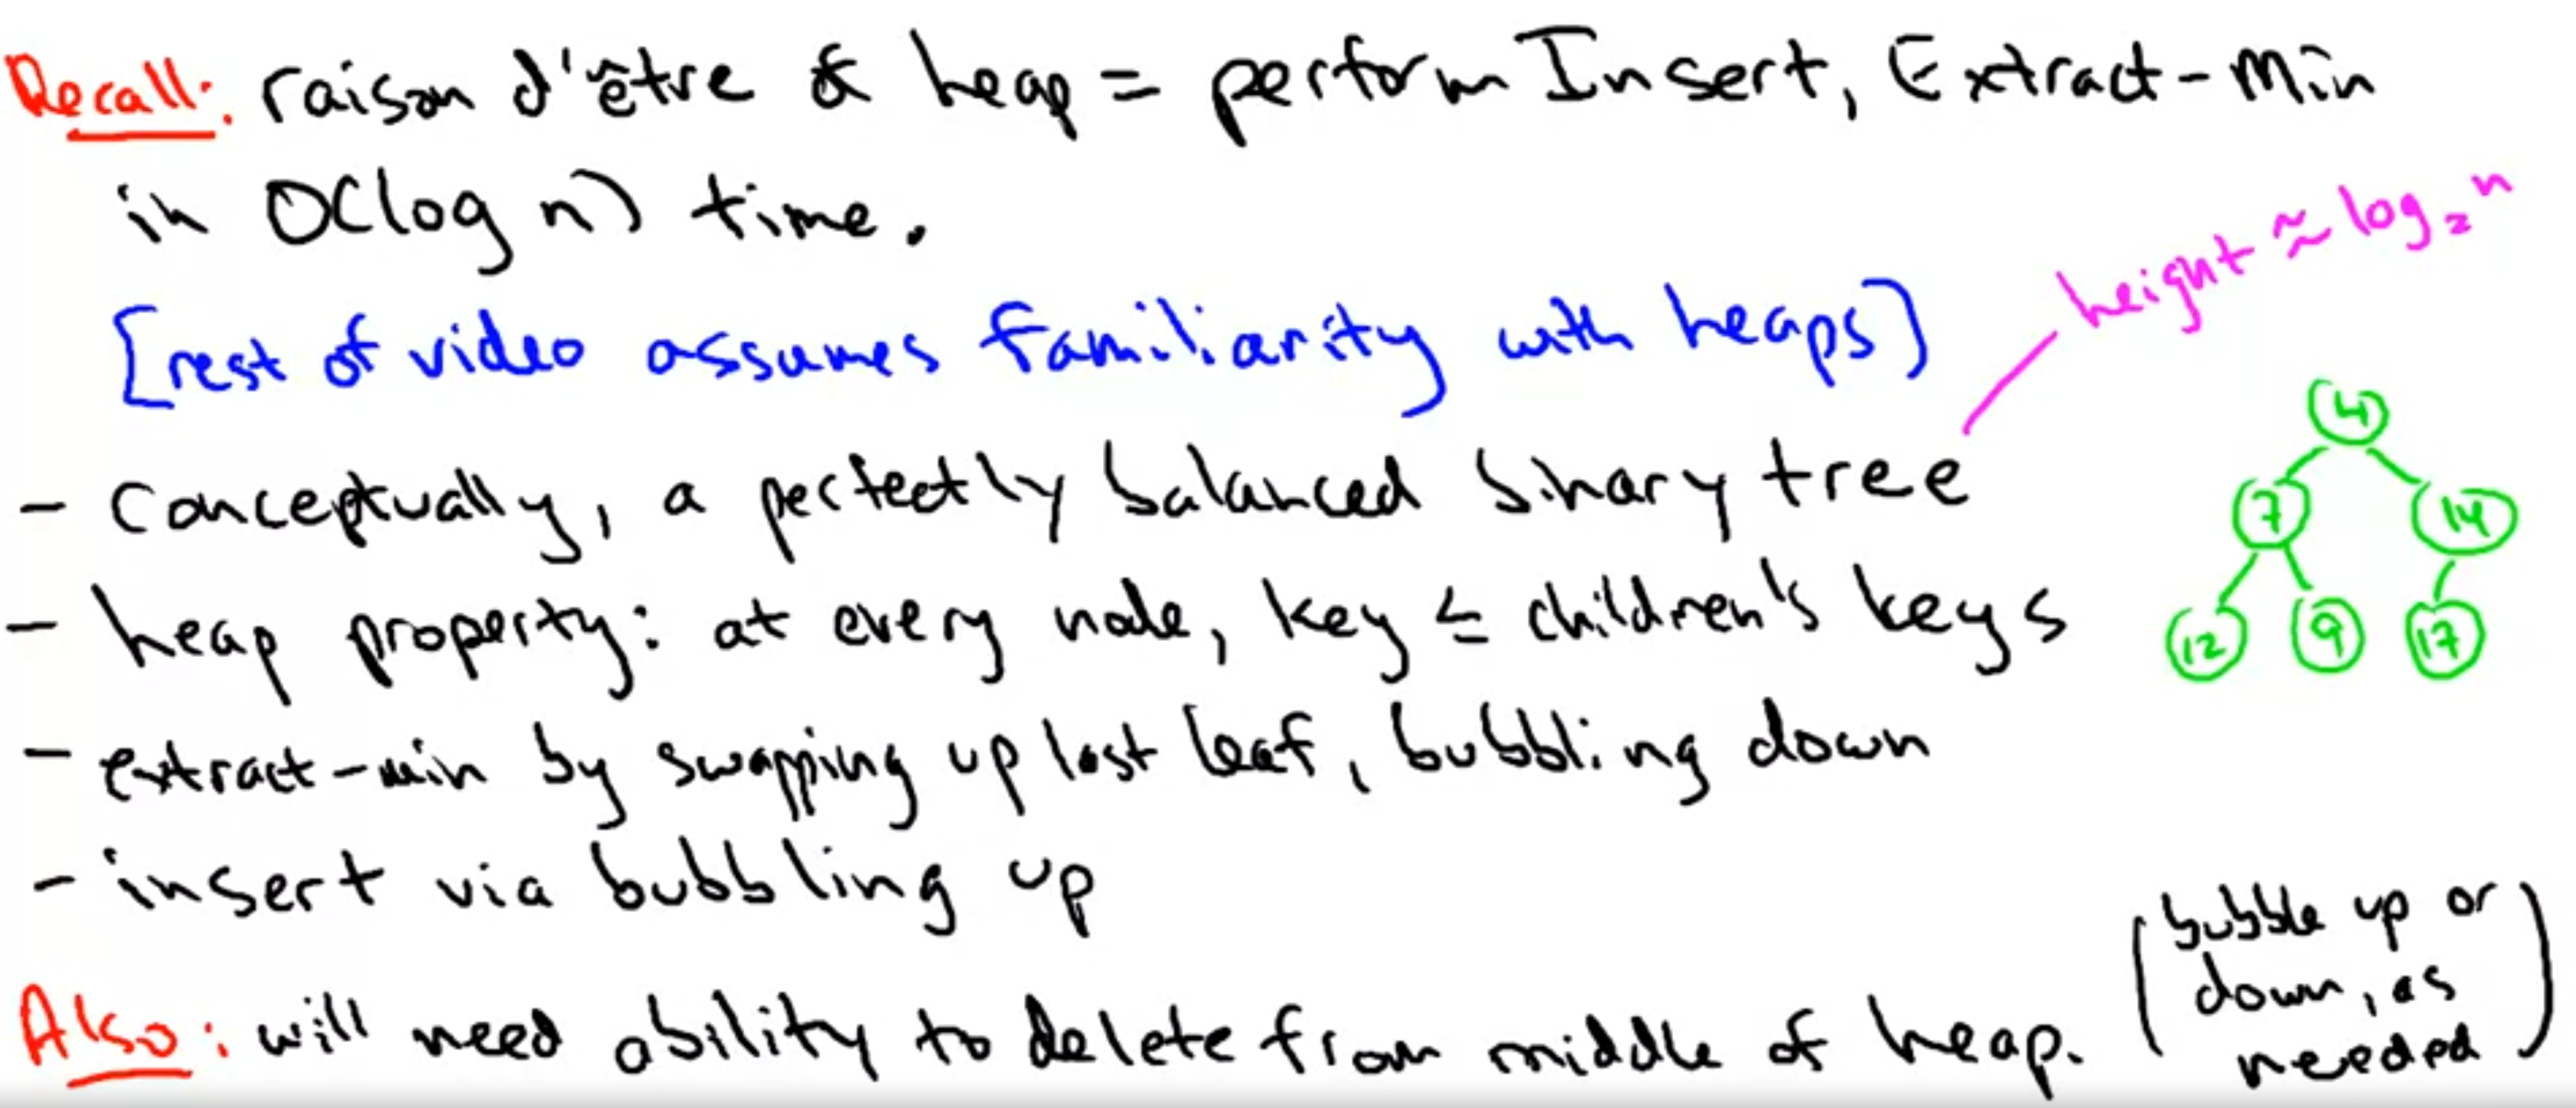 Recall: raison d'être of heap = perform Insert, Extract-Min
in O(log n) time.
height ≈ log₂ n
[rest of video assumes familiarity with heaps]
- conceptually, a perfectly balanced binary tree
- heap property: at every node, key ≤ children's keys
- extract-min by swapping up last leaf, bubbling down
- insert via bubbling up
4
7 14
12 9 17
Also: will need ability to delete from middle of heap.
(bubble up or
down, as
needed)